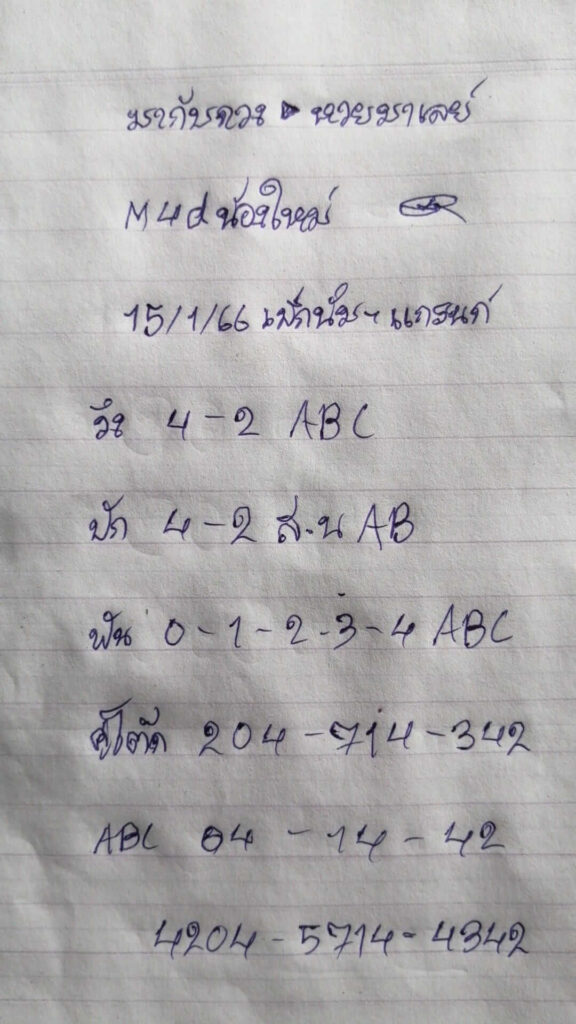 มากับดวง ▶ หวยมาเลย์
M4d น้องใหม่
15/1/66 เปิดนัมฯ แกรนก์
วิ่ง 4 - 2 ABC
ปัก 4 - 2 ส.น AB
ฟัน 0 - 1 - 2 - 3 - 4 ABC
204 - 714 - 342
ABC 04 - 14 - 42
4204 - 5714 - 4342